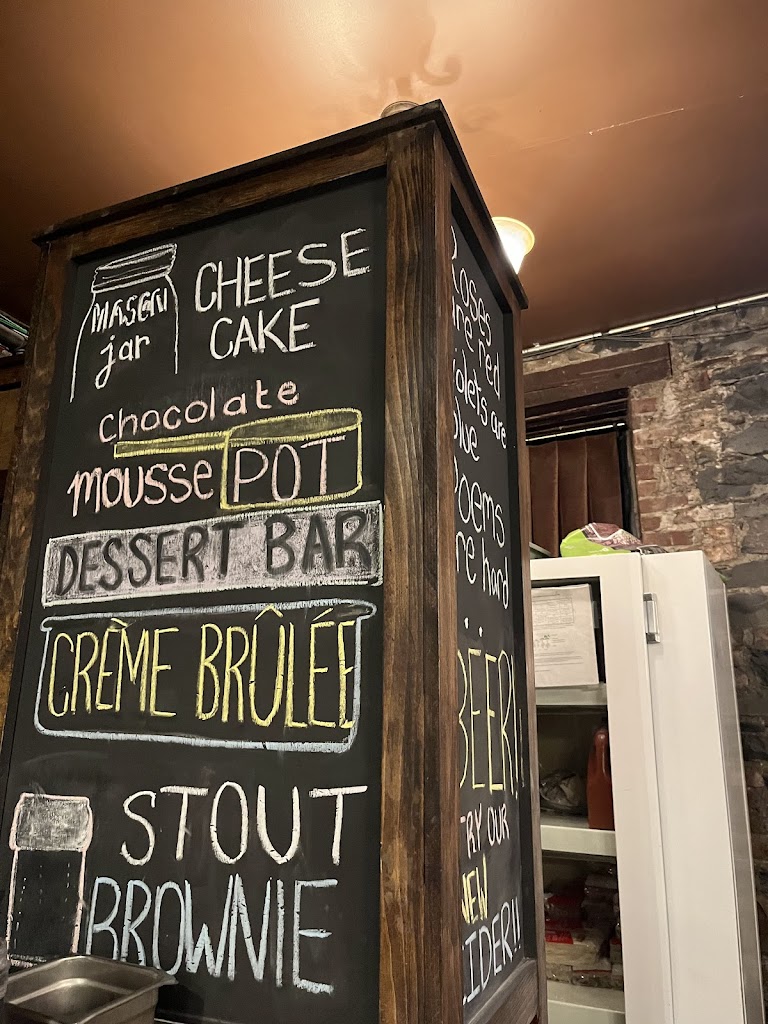 MASON
jar
CHEESE
CAKE
Chocolate
mousse POT
DESSERT BAR
CRÈME BRÛLÉE
STOUT
BROWNIE
Roses
are red
violets are
blue
Poems
are hard
...
BEER!!
TRY OUR
NEW
CIDER!!